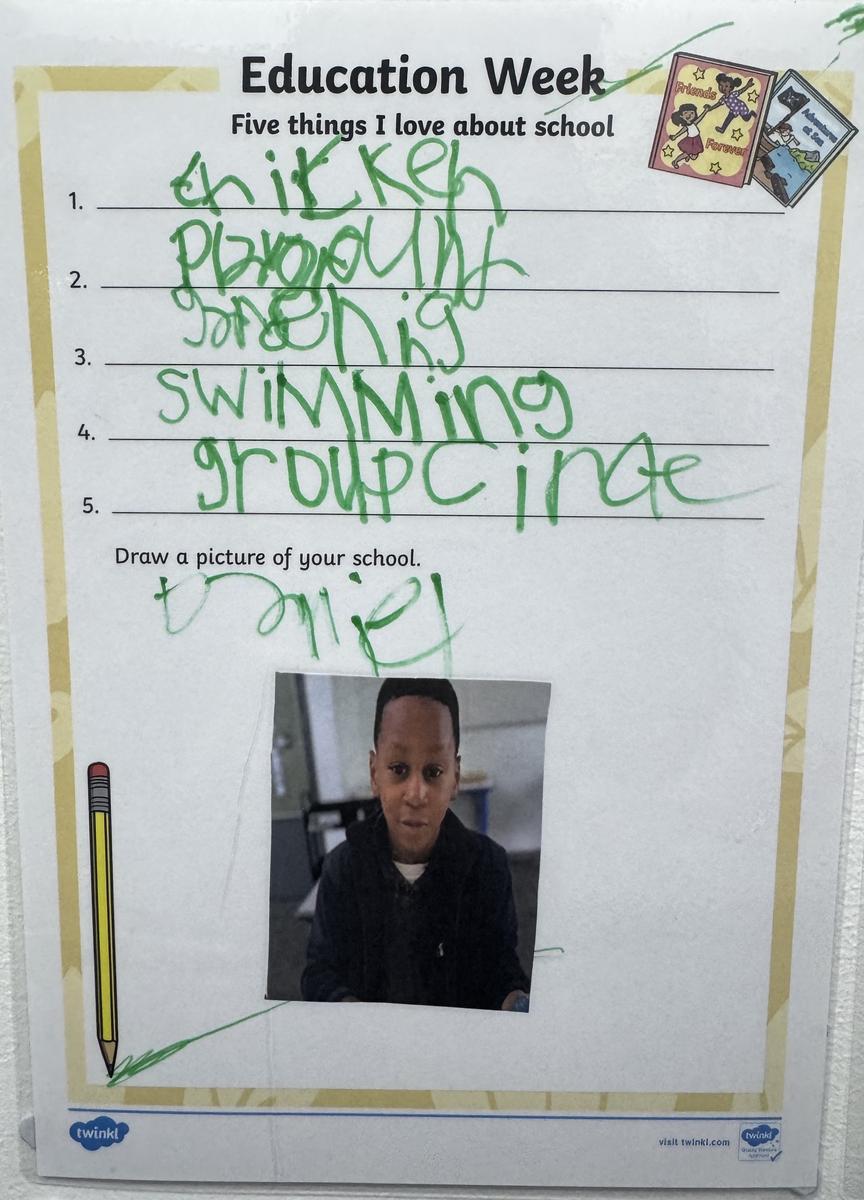 Education Week
Five things I love about school
Friends
Forever
Adventures
at Sea
1. chicken
2.
3.
4. swimming
5. group
Draw a picture of your school.
Daniel
twinkl
visit twinkl.com
twinkl
Quality Standard
Approved